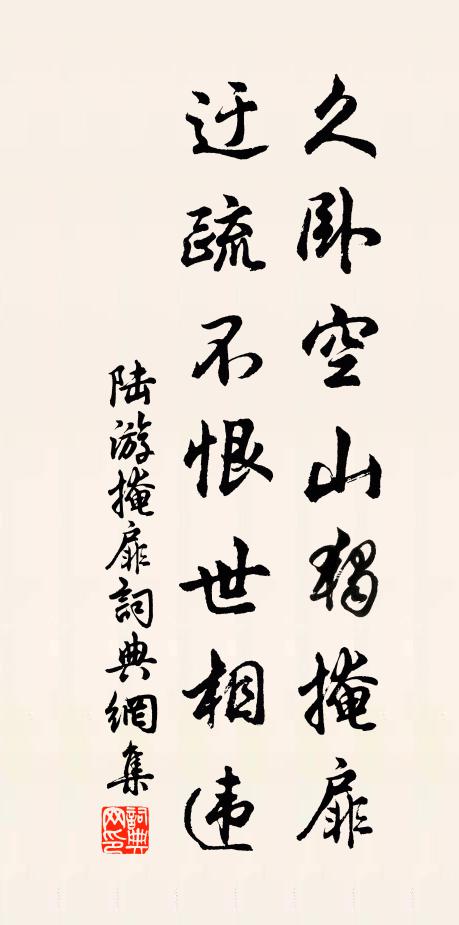 久卧空山独掩扉
迂疏不恨世相违
陆游掩扉詞典網集
詞典网印